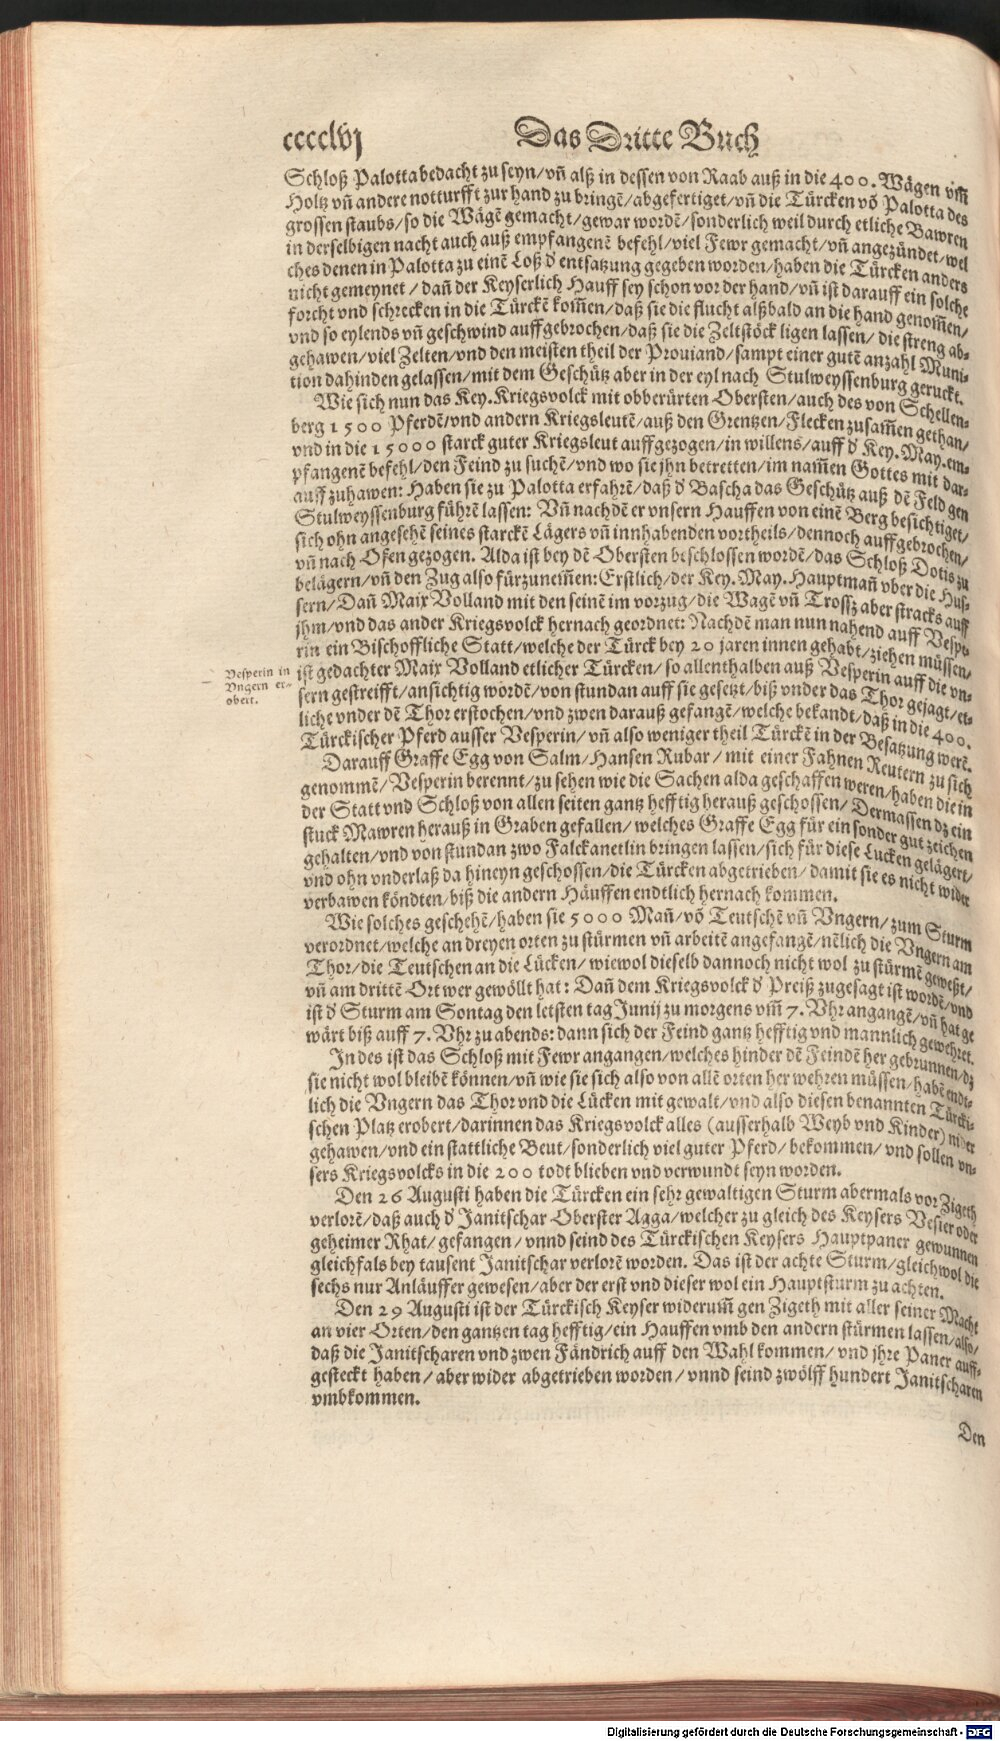 cccclvj Das Dritte Buch
Schloß Palotta bedacht zu seyn/vñ alß in dessen von Raab auß in die 400. Wägen vm̃
Holtz vñ andere notturfft zur hand zu bringē/abgefertiget/vñ die Türcken võ Palotta des
grossen staubs/so die Wägē gemacht/gewar wordē/sonderlich weil durch etliche Bawren
in derselbigen nacht auch auß empfangenē befehl/viel Fewr gemacht/vñ angezündet/wel
ches denen in Palotta zu einē Loß d' entsatzung gegeben worden/haben die Türcken anders
nicht gemeynet/dañ der Keyserlich Hauff sey schon vor der hand/vñ ist darauff ein solche
forcht vnd schrecken in die Türckē kom̃en/daß sie die flucht alßbald an die hand genom̃en/
vnd so eylends vñ geschwind auffgebrochen/daß sie die Zeltstöck ligen lassen/die streng ab-
gehawen/viel Zelten/vnd den meisten theil der Prouiand/sampt einer gutē anzahl Muni-
tion dahinden gelassen/mit dem Geschütz aber in der eyl nach Stulweyssenburg geruckt.
Wie sich nun das Key. Kriegsvolck mit obberürten Obersten/auch des von Schellen-
berg 1500 Pferdē/vnd andern Kriegsleutē/auß den Grentzen/Flecken zusam̃en gethan/
vnd in die 15000 starck guter Kriegsleut auffgezogen/in willens/auff d' Key. May. em-
pfangenē befehl/den Feind zu suchē/vnd wo sie jhn betretten/im nam̃en Gottes mit dar-
auff zuhawen: Haben sie zu Palotta erfahrē/daß d' Bascha das Geschütz auß dē Feld gen
Stulweyssenburg führē lassen: Vñ nachdē er vnsern Hauffen von einē Berg besichtiget/
sich ohn angesehē seines starckē Lägers vñ innhabenden vortheils/dennoch auffgebrochen/
vñ nach Ofen gezogen. Alda ist bey dē Obersten beschlossen wordē/das Schloß Dotis zu
belägern/vñ den Zug also fürzunem̃en: Erstlich/der Key. May. Hauptmañ vber die Hus-
sern/Dañ Maix Volland mit den seinē im vorzug/die Wagē vñ Trossz aber stracks auff
jhm/vnd das ander Kriegsvolck hernach geordnet: Nachdē man nun nahend auff Vespe
rin ein Bischoffliche Statt/welche der Türck bey 20 jaren innen gehabt/ziehen müssen/
Vesperin in
Vngern er-
obert.
ist gedachter Maix Volland etlicher Türcken/so allenthalben auß Vesperin auff die vn-
sern gestreifft/ansichtig wordē/von stundan auff sie gesetzt/biß vnder das Thor gejagt/et-
liche vnder dē Thor erstochen/vnd zwen darauß gefangē/welche bekandt/daß in die 400.
Türckischer Pferd ausser Vesperin/vñ also weniger theil Türckē in der Besatzung werē.
Darauff Graffe Egg von Salm/Hansen Rubar/mit einer Fahnen Reutern zu sich
genommē/Vesperin berennt/zu sehen wie die Sachen alda geschaffen weren/haben die in
der Statt vnd Schloß von allen seiten gantz hefftig herauß geschossen/Dermassen dz ein
stuck Mawren herauß in Graben gefallen/welches Graffe Egg für ein sonder gut zeichen
gehalten/vnd von stundan zwo Falckanetlin bringen lassen/sich für diese Lucken gelägert/
vnd ohn vnderlaß da hineyn geschossen/die Türcken abgetrieben/damit sie es nicht wider
verbawen köndten/biß die andern Häuffen endtlich hernach kommen.
Wie solches geschehē/haben sie 5000 Mañ/võ Teutschē vñ Vngern/zum Sturm
verordnet/welche an dreyen orten zu stürmen vñ arbeitē angefangē/nēlich die Vngern am
Thor/die Teutschen an die Lücken/wiewol dieselb dannoch nicht wol zu stürmē geweßt/
vñ am drittē Ort wer gewöllt hat: Dañ dem Kriegsvolck d' Preiß zugesagt ist wordē/vnd
ist d' Sturm am Sontag den letsten tag Junij zu morgens vm̃ 7. Vhr angangē/vñ hat ge
wärt biß auff 7. Vhr zu abends: dann sich der Feind gantz hefftig vnd mannlich gewehret.
In des ist das Schloß mit Fewr angangen/welches hinder dē Feindē her gebrunnen/dz
sie nicht wol bleibē können/vñ wie sie sich also von allē orten her wehren müssen/habē endt-
lich die Vngern das Thor vnd die Lücken mit gewalt/vnd also diesen benannten Türcki-
schen Platz erobert/darinnen das Kriegsvolck alles (ausserhalb Weyb vnd Kinder) nider
gehawen/vnd ein stattliche Beut/sonderlich viel guter Pferd/bekommen/vnd sollen vn-
sers Kriegsvolcks in die 200 todt blieben vnd verwundt seyn worden.
Den 26 Augusti haben die Türcken ein sehr gewaltigen Sturm abermals vor Zigeth
verlorē/daß auch d' Janitschar Oberster Agga/welcher zu gleich des Keysers Vesier oder
geheimer Rhat/gefangen/vnnd seind des Türckischen Keysers Hauptpaner gewunnen
gleichfals bey tausent Janitschar verlorē worden. Das ist der achte Sturm/gleichwol die
sechs nur Anläuffer gewesen/aber der erst vnd dieser wol ein Hauptsturm zu achten.
Den 29 Augusti ist der Türckisch Keyser widerum̃ gen Zigeth mit aller seiner Macht
an vier Orten/den gantzen tag hefftig/ein Hauffen vmb den andern stürmen lassen/also/
daß die Janitscharen vnd zwen Fändrich auff den Wahl kommen/vnd jhre Paner auff-
gesteckt haben/aber wider abgetrieben worden/vnnd seind zwölff hundert Janitscharen
vmbkommen.
Den
Digitalisierung gefördert durch die Deutsche Forschungsgemeinschaft - DFG